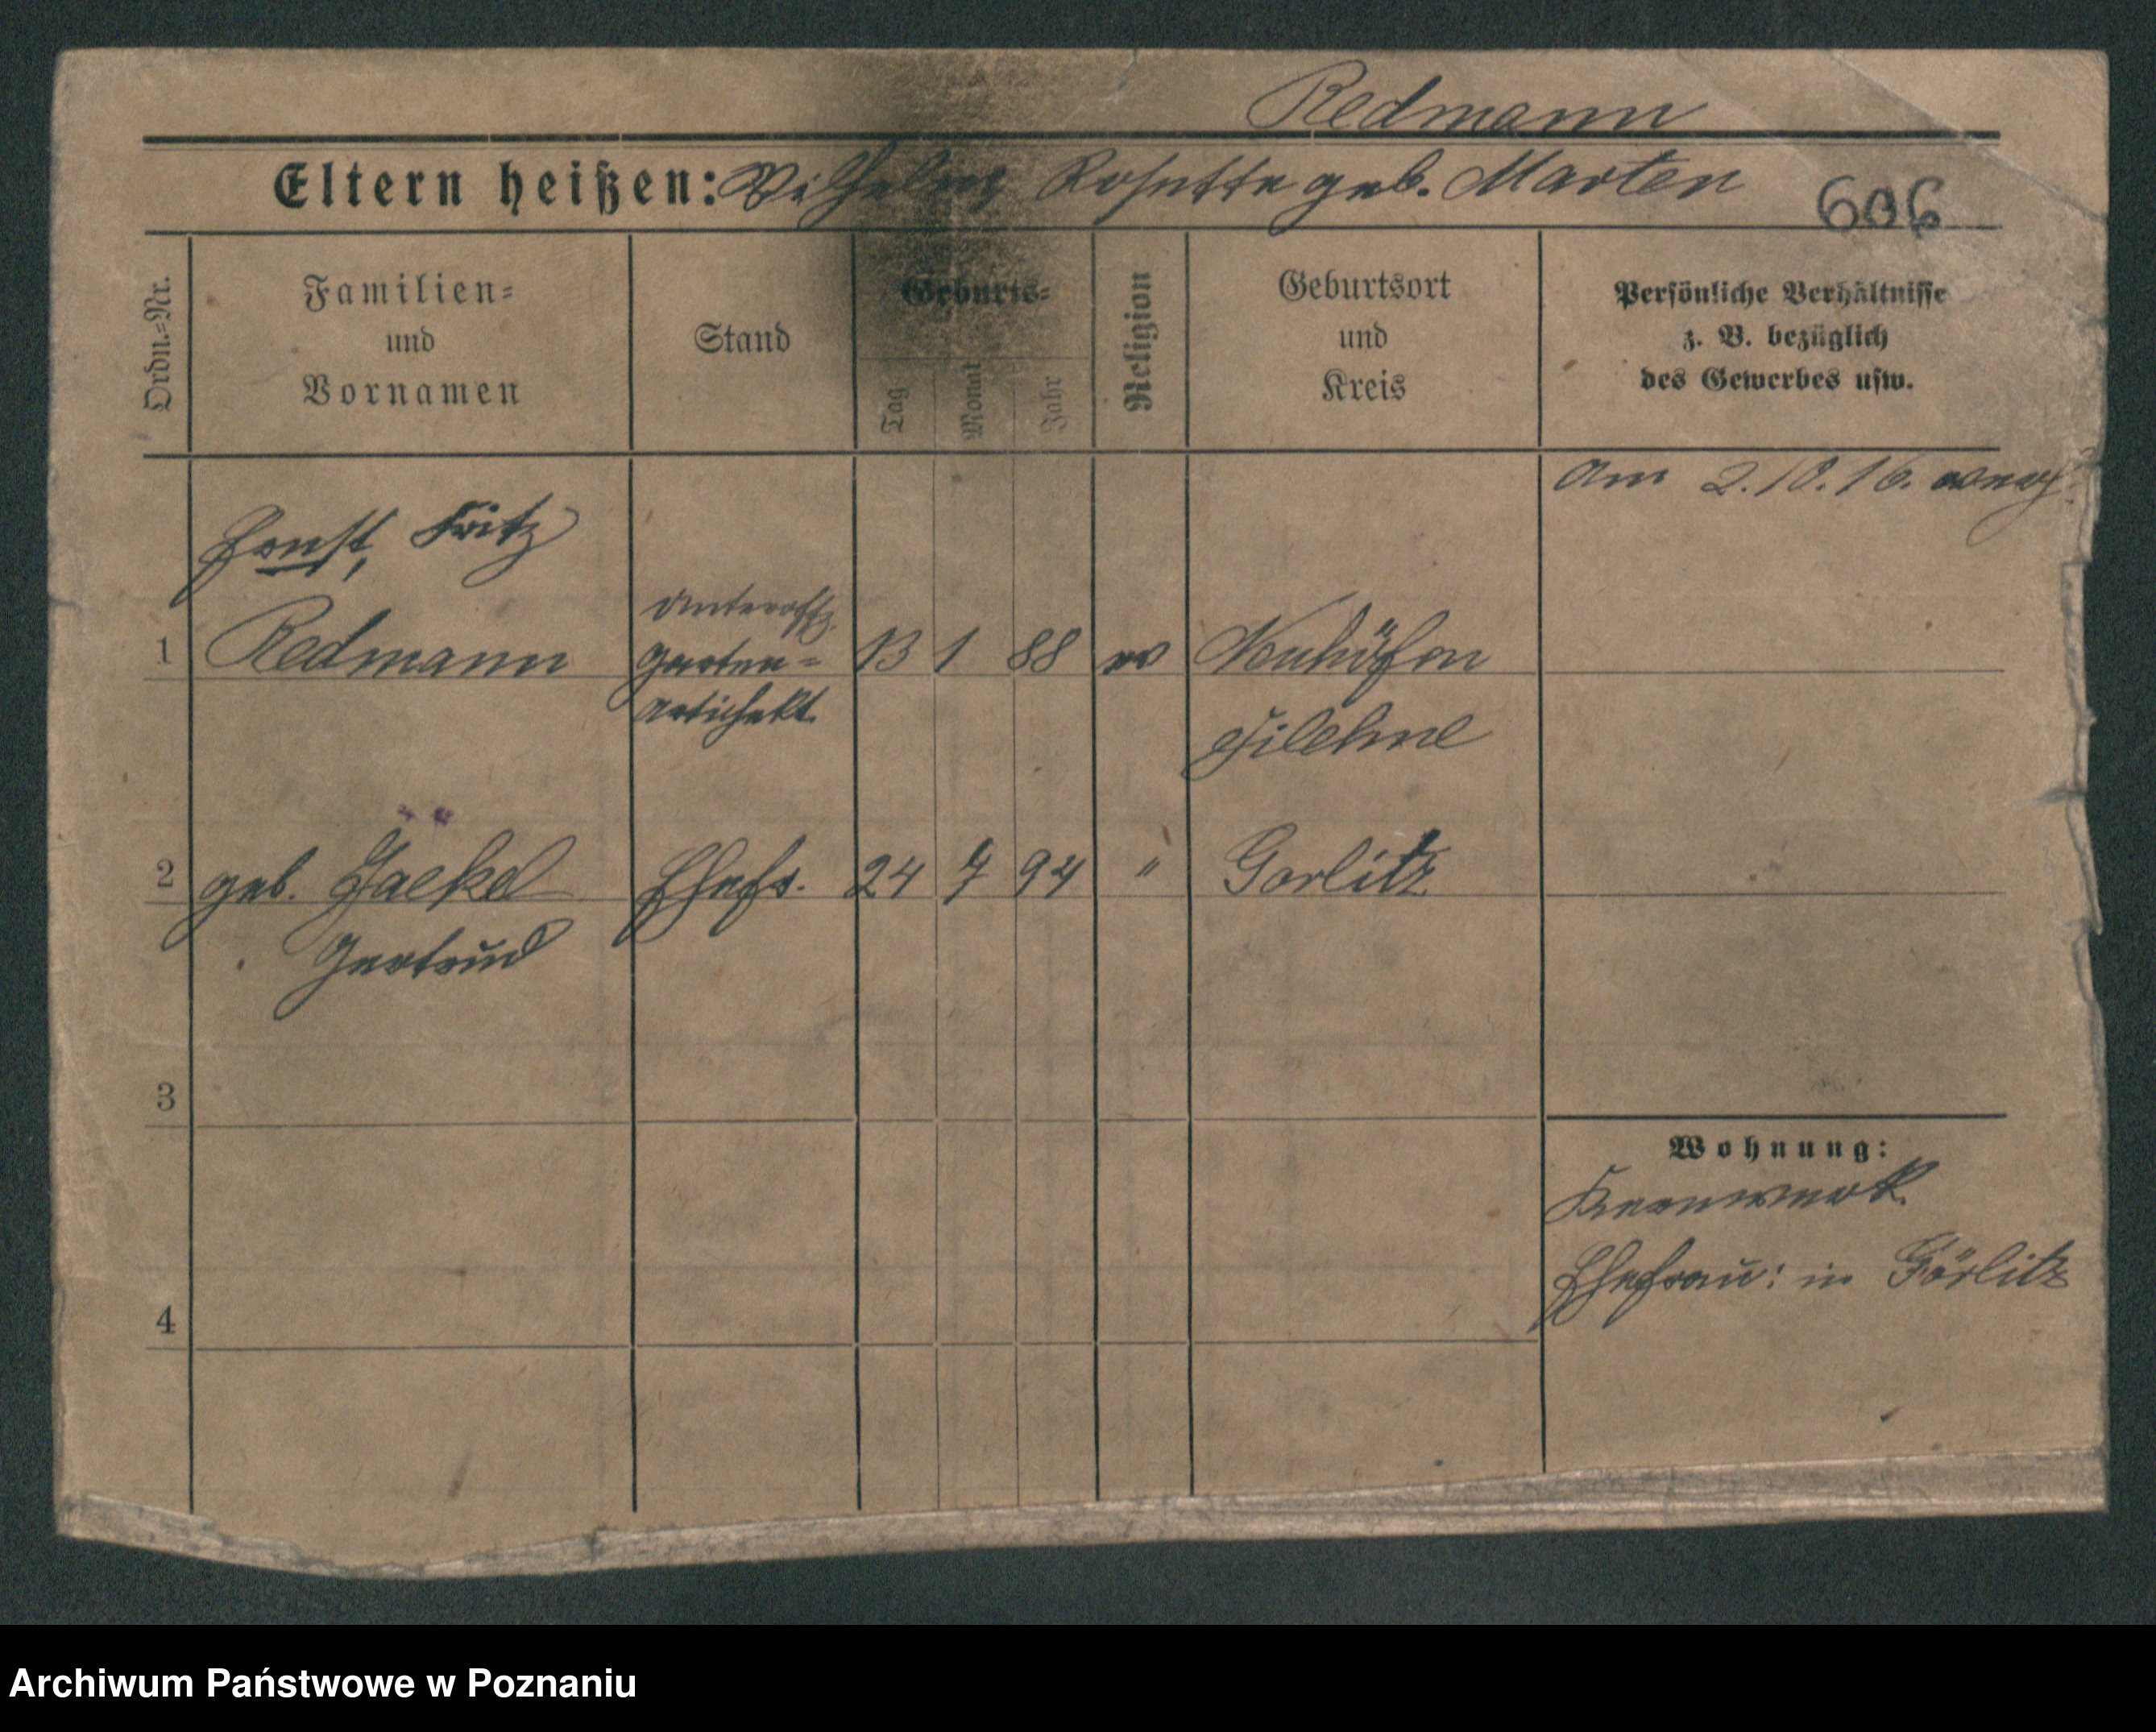 Redmann
Eltern heißen: Wilhelm Rosette geb. Marten
606
Ordn.=Nr.
Familien=
und
Vornamen
Stand
Geburts=
Tag
Monat
Jahr
Religion
Geburtsort
und
Kreis
Persönliche Verhältnisse
z. B. bezüglich
des Gewerbes usw.
Am 2.10.16.
Ernst, Fritz
1 Redmann
Unteroffz.
Garten=
Artichekt.
13 1 88 ev Neuhöfen
Filehne
2 geb. Jaekel Ehefr. 24 7 94 " Gorlitz
Gertrud
3
4
Wohnung:
Kernwerk.
Ehefrau: in Görlitz
Archiwum Państwowe w Poznaniu